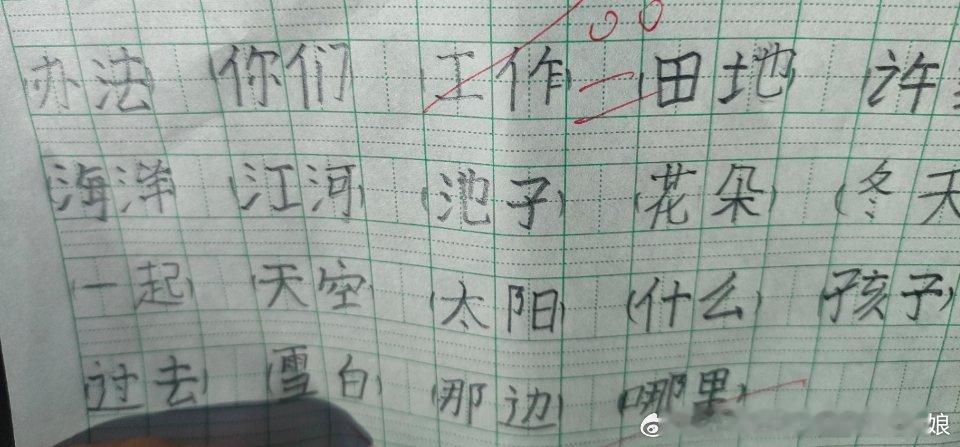 (办法) (你们) (工作) (田地) (许
(海洋) (江河) (池子) (花朵) (冬天
(一起) (天空) (太阳) (什么) (孩子)
(过去) (雪白) (那边) (哪里)
娘